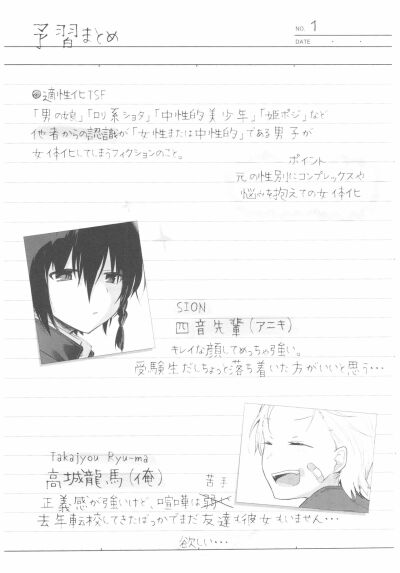 予習まとめ
NO. 1
DATE
◎適性化TSF
「男の娘」「ロリ系ショタ」「中性的美少年」「姫ポジ」など
他者からの認識が「女性または中性的」である男子が
女体化してしまうフィクションのこと。
ポイント
元の性別にコンプレックスや
悩みを抱えての女体化
SION
四音先輩(アニキ)
キレイな顔してめっちゃ強い。
受験生だしちょっと落ち着いた方がいいと思う…
Takajyou Ryu-ma
高城龍馬(俺)
苦手
正義感が強いけど、喧嘩は弱く
去年転校してきたばっかでまだ友達も彼女もいません…
欲しい…